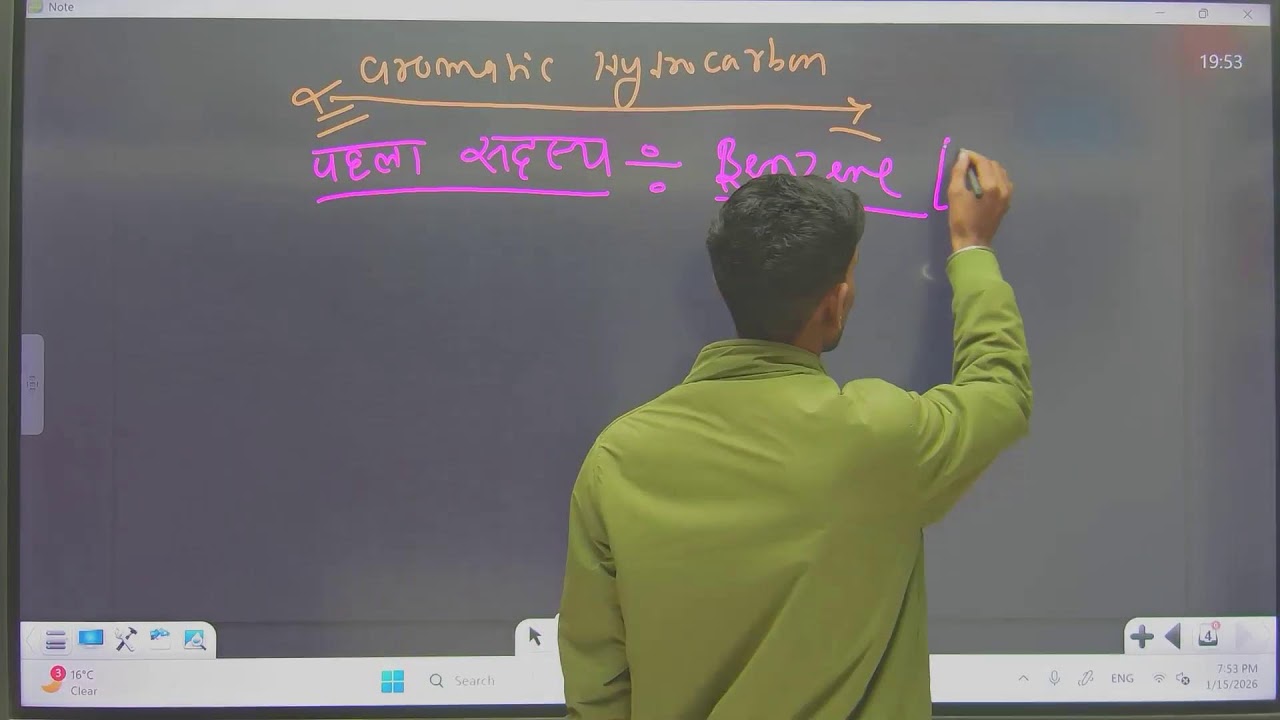 Note
19:53
aromatic Hydrocarbon
पहला सदस्य ÷ Benzene [
4
3
16°C
Clear
Search
ENG
7:53 PM
1/15/2026